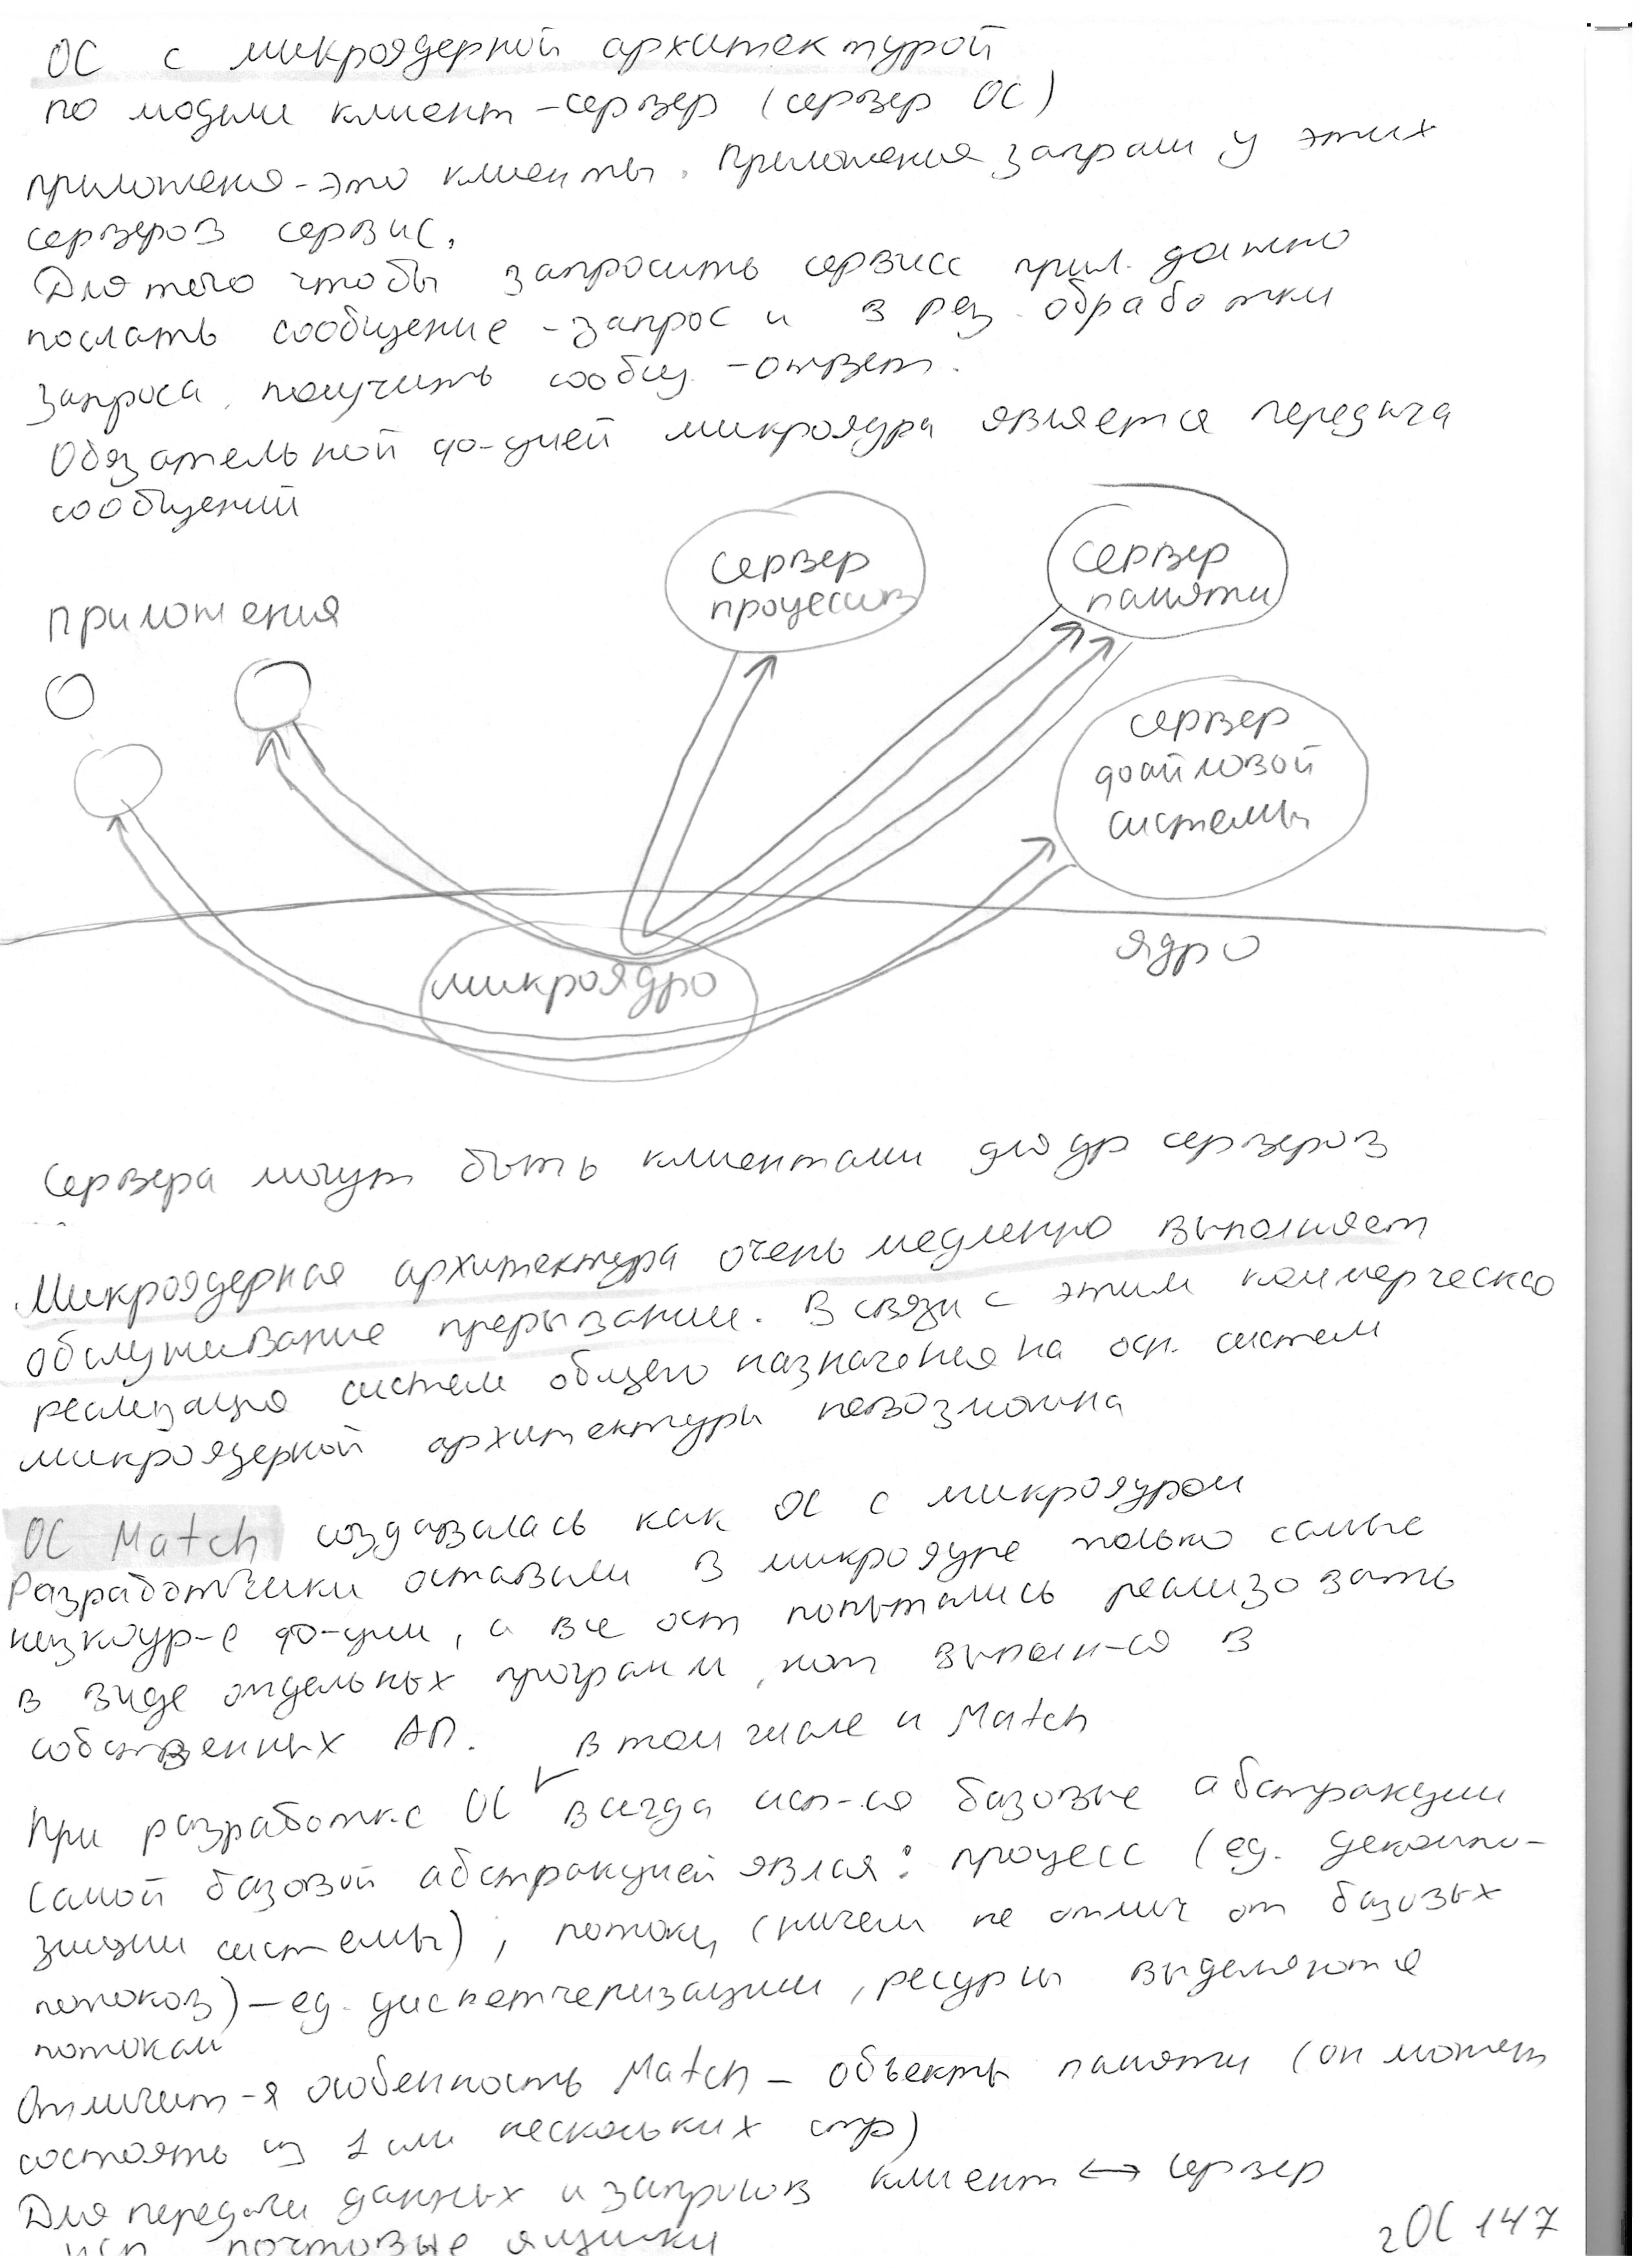 ОС с микроядерной архитектурой
по модели клиент-сервер (сервер ОС)
приложения-это клиенты. Приложения запраш у этих
серверов сервис.
Для того чтобы запросить сервисс прил. должно
послать сообщение-запрос и в рез. обработки
запроса, получить сообщ.-ответ.
Обязательной ф-цией микроядра является передача
сообщений
приложения
сервер
процессов
сервер
памяти
сервер
файловой
системы
ядро
микроядро
Сервера могут быть клиентами для др серверов
Микроядерная архитектура очень медленно выполняет
обслуживание прерываний. В связи с этим коммерческо
реализация систем общего назначения на осн. систем
микроядерной архитектуры невозможна
ОС Match создавалась как ОС с микроядром
Разработчики оставили в микроядре только самые
низкоур-е ф-ции, а все ост попытались реализовать
в виде отдельных программ, кот выполн-ся в
собственных АП.
в том числе и Match
При разработке ОС всегда исп-ся базовые абстракции
Самой базовой абстракцией явлся: процесс (ед. декомпо-
зиции системы), потоки, (ничем не отлич от базовых
потоков) – ед. диспетчеризации, ресурсы выделяются
потокам
Отличит-я особенность Match – объекты памяти (он может
состоять из 1 или нескольких стр)
Для передачи данных и запросов клиент ↔ сервер
исп. почтовые ящики
2ОС 147